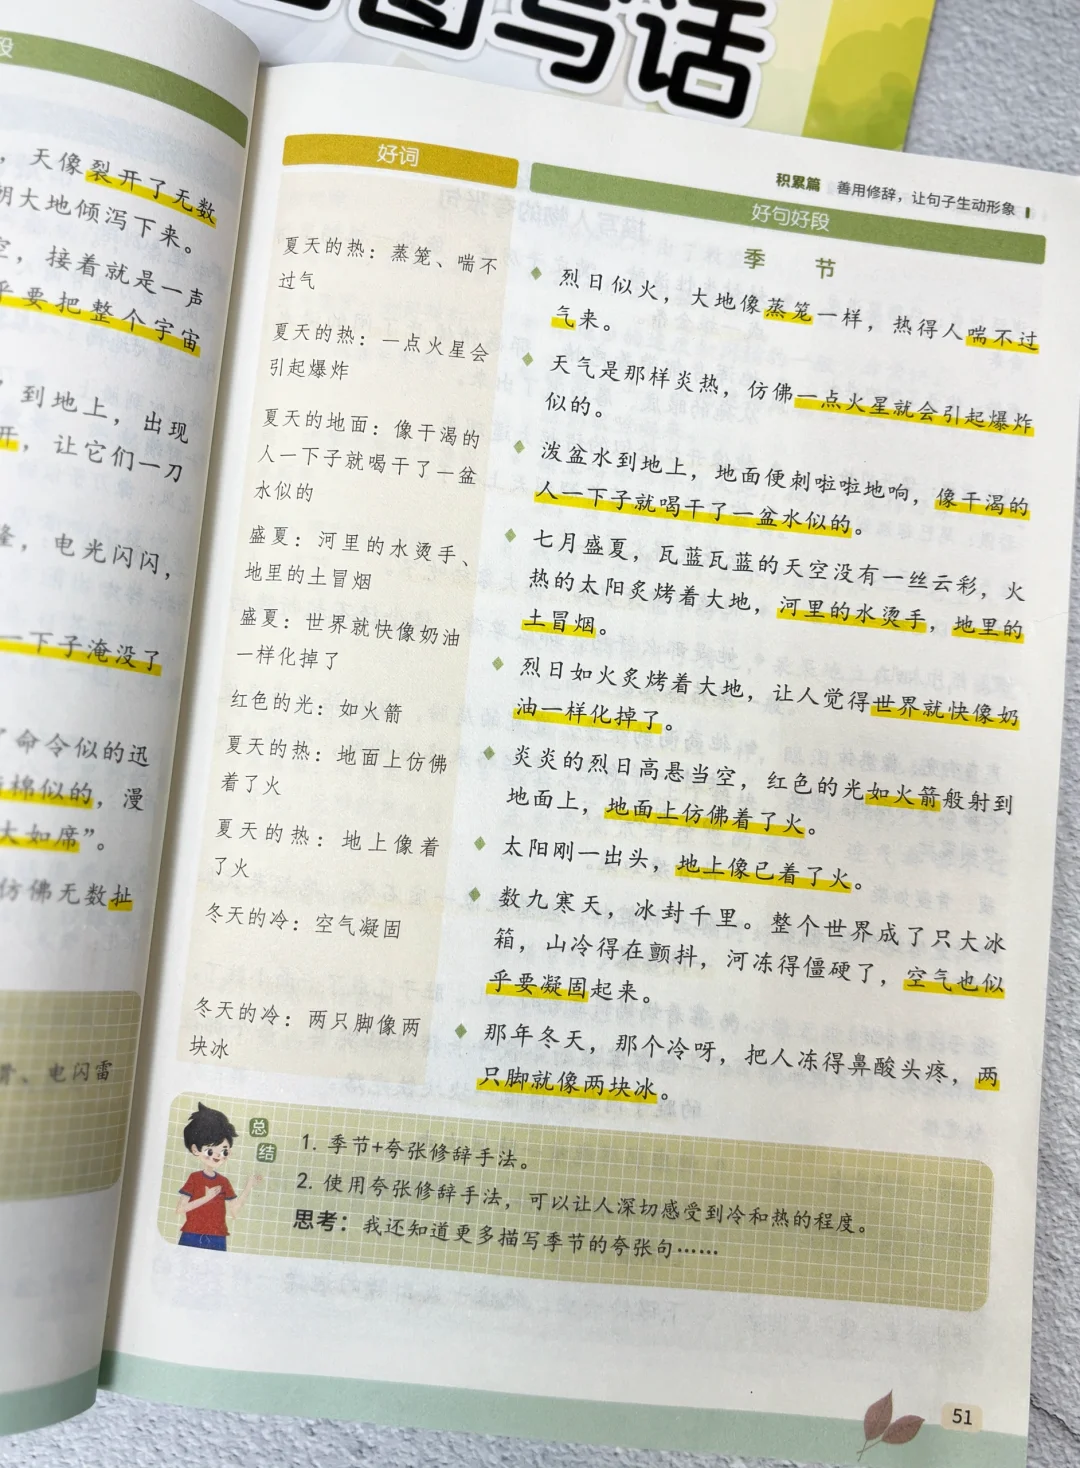 图写话
段
，天像裂开了无数
大地倾泻下来。
，接着就是一声
乎要把整个宇宙
到地上，出现
开，让它们一刀
，电光闪闪，
一下子淹没了
命令似的迅
棉似的，漫
大如席”。
仿佛无数扯
、电闪雷
积累篇 善用修辞，让句子生动形象
好词
好句好段
季 节
夏天的热：蒸笼、喘不
过气
夏天的热：一点火星会
引起爆炸
夏天的地面：像干渴的
人一下子就喝干了一盆
水似的
盛夏：河里的水烫手、
地里的土冒烟
盛夏：世界就快像奶油
一样化掉了
红色的光：如火箭
夏天的热：地面上仿佛
着了火
夏天的热：地上像着
了火
冬天的冷：空气凝固
冬天的冷：两只脚像两
块冰
烈日似火，大地像蒸笼一样，热得人喘不过
气来。
天气是那样炎热，仿佛一点火星就会引起爆炸
似的。
泼盆水到地上，地面便刺啦啦地响，像干渴的
人一下子就喝干了一盆水似的。
七月盛夏，瓦蓝瓦蓝的天空没有一丝云彩，火
热的太阳炙烤着大地，河里的水烫手，地里的
土冒烟。
烈日如火炙烤着大地，让人觉得世界就快像奶
油一样化掉了。
炎炎的烈日高悬当空，红色的光如火箭般射到
地面上，地面上仿佛着了火。
太阳刚一出头，地上像已着了火。
数九寒天，冰封千里。整个世界成了只大冰
箱，山冷得在颤抖，河冻得僵硬了，空气也似
乎要凝固起来。
那年冬天，那个冷呀，把人冻得鼻酸头疼，两
只脚就像两块冰。
总结
1. 季节+夸张修辞手法。
2. 使用夸张修辞手法，可以让人深切感受到冷和热的程度。
思考：我还知道更多描写季节的夸张句……
51